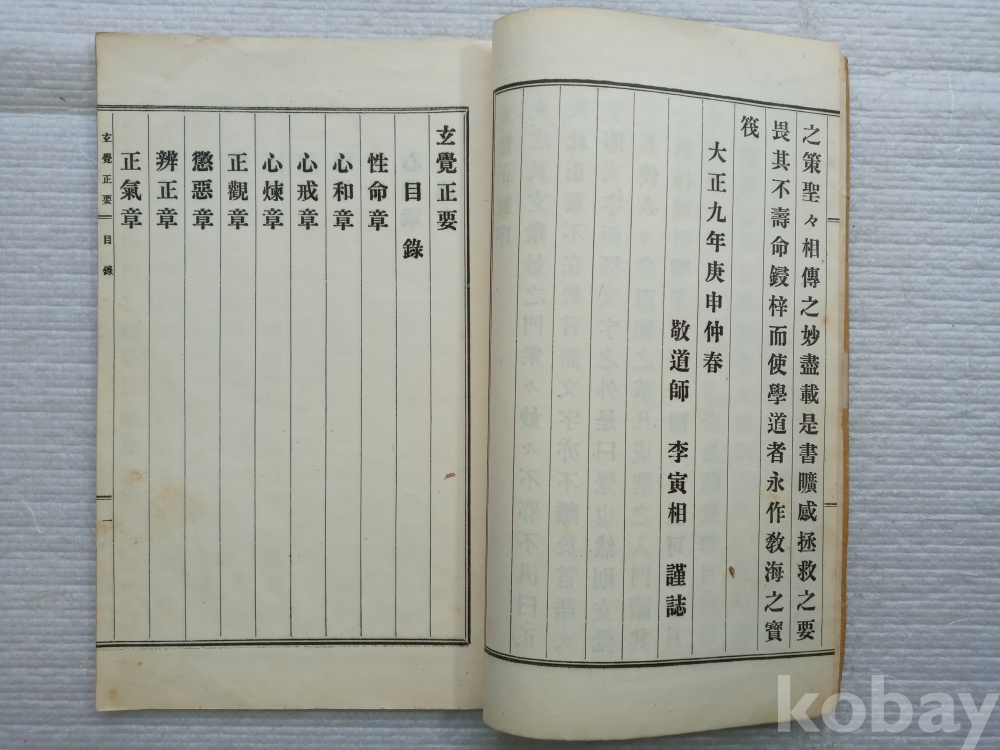 之策聖々相傳之妙盡載是書曠感拯救之要
畏其不壽命鋟梓而使學道者永作敎海之寶
筏
大正九年庚申仲春
敬道師 李寅相 謹誌
玄覺正要
目錄
性命章
心和章
心戒章
心煉章
正觀章
懲惡章
辨正章
正氣章
玄覺正要 目錄 一
kobay